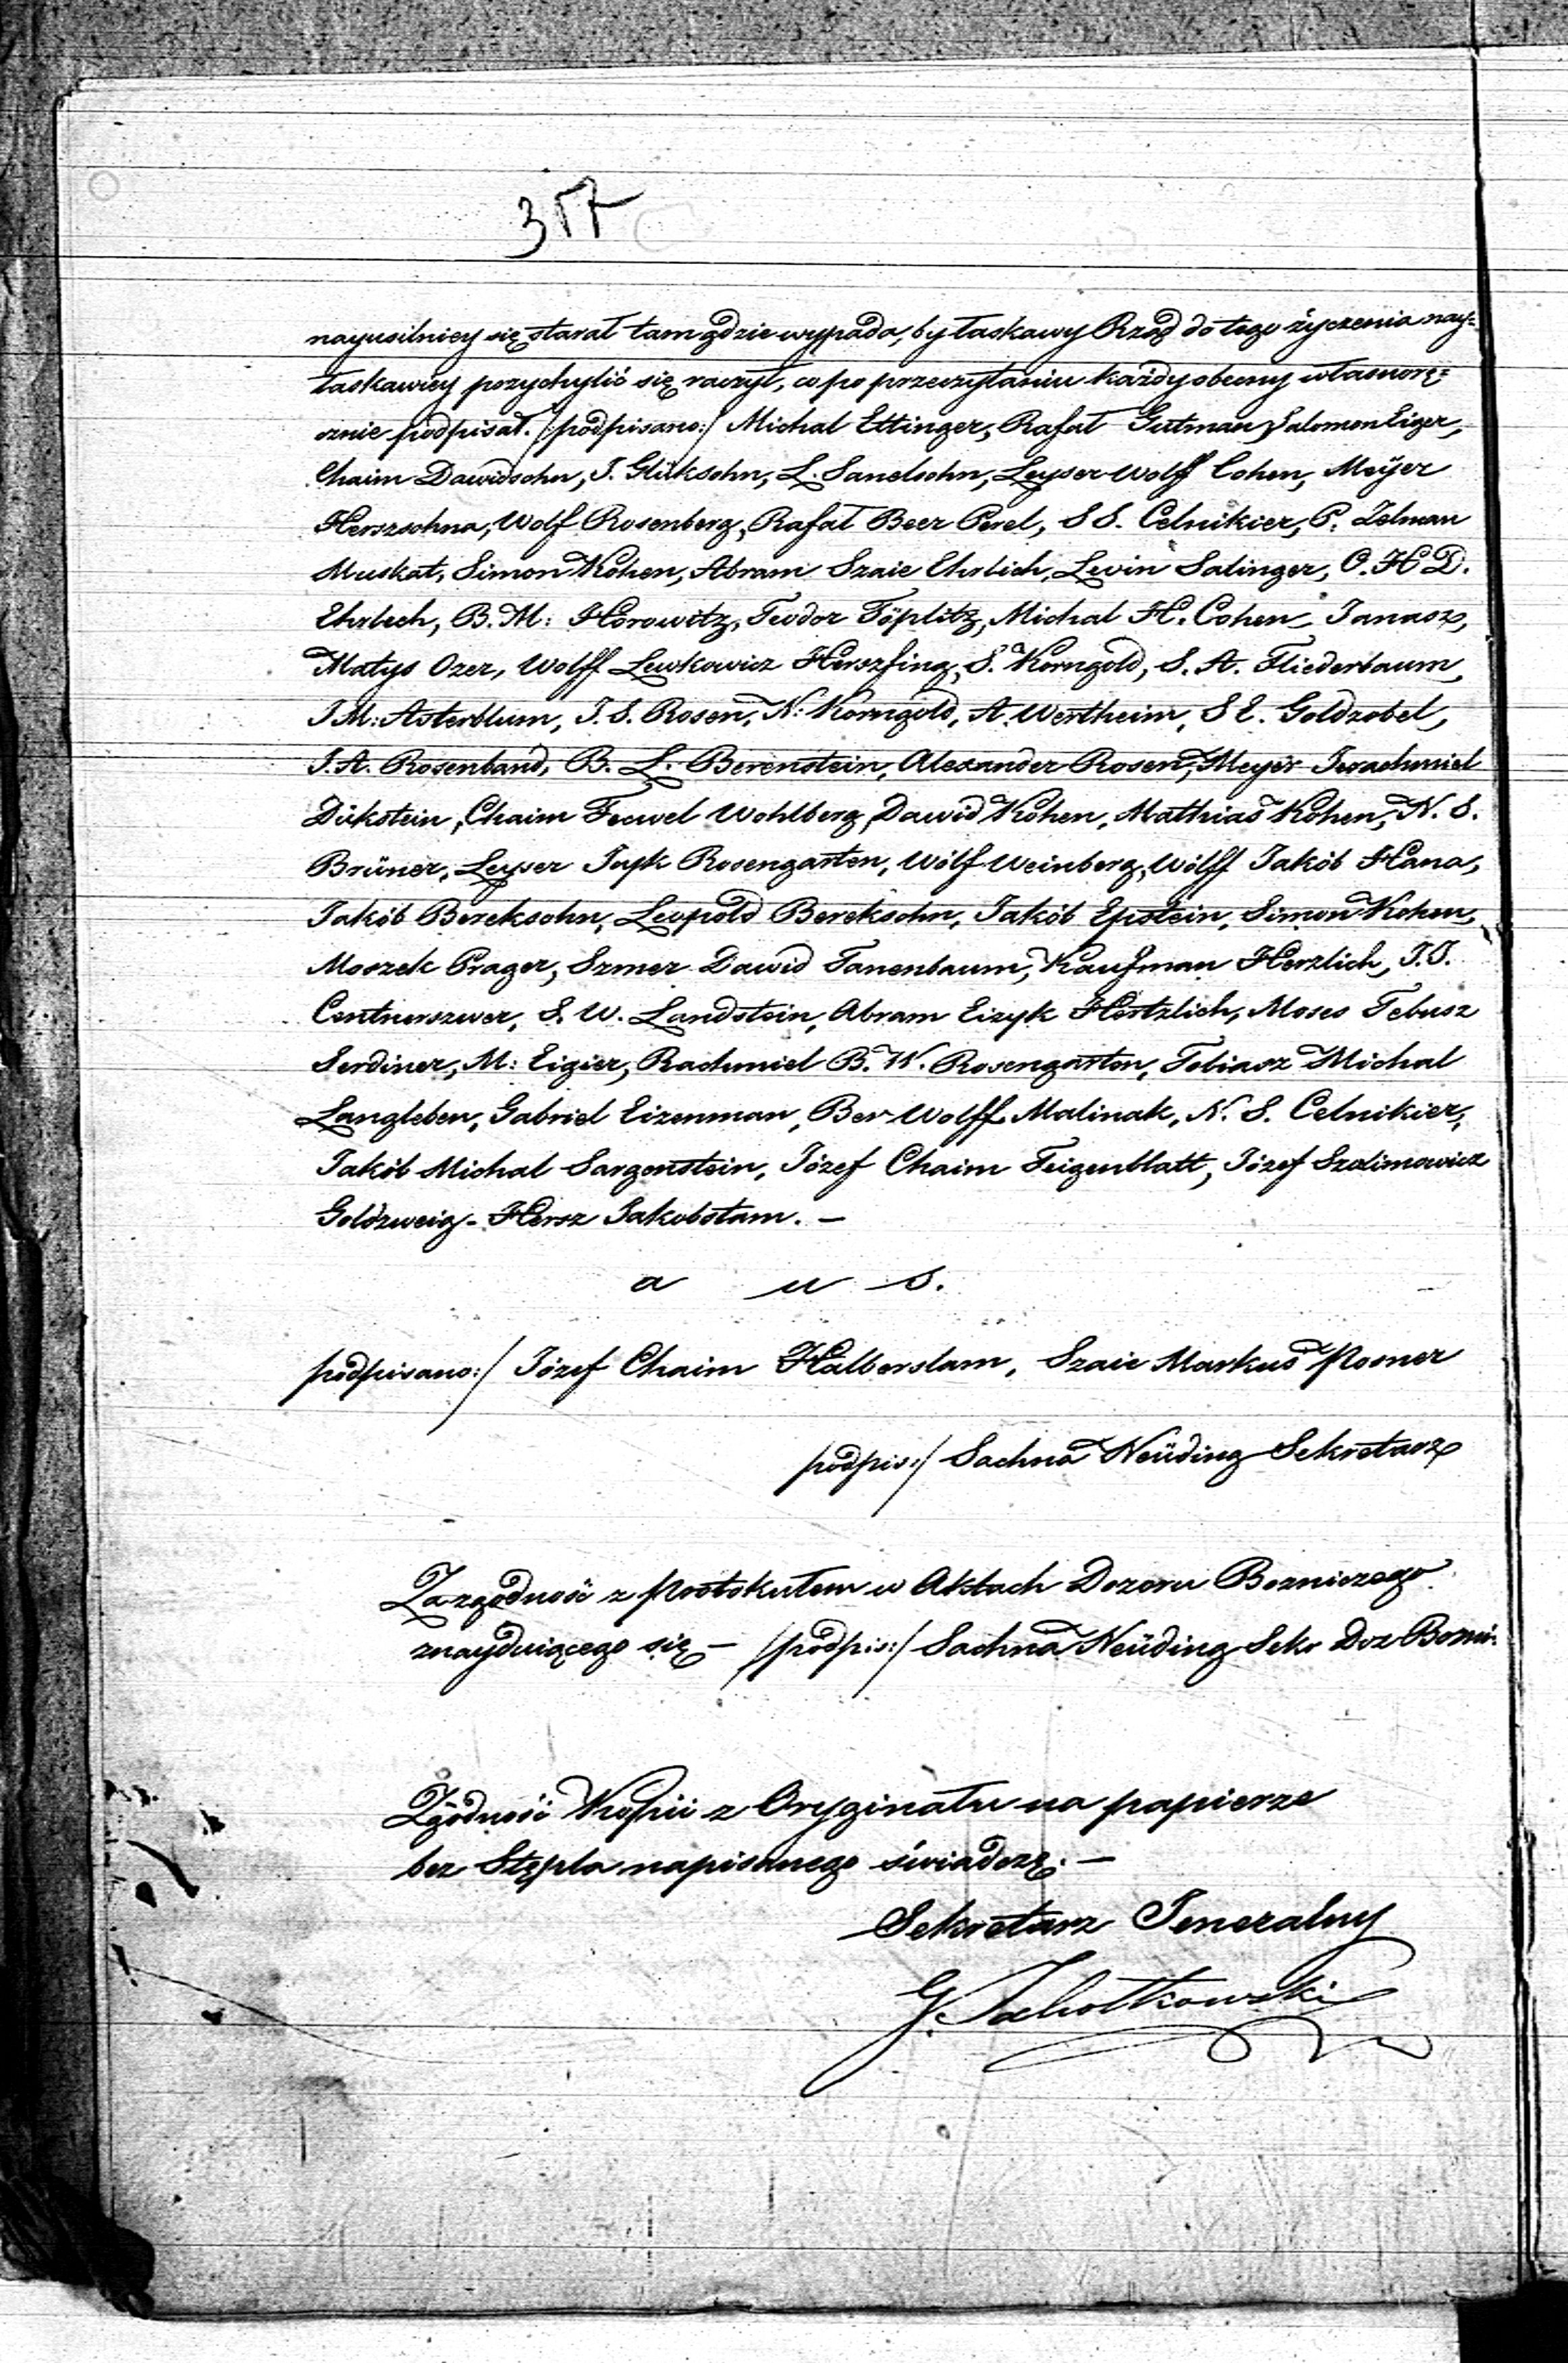 357
nayusilniey się starał tam gdzie wypada, by łaskawy Rząd do tego życzenia nay=
łaskawiey przychylić się raczył, co po przeczytaniu każdy obecny własnorę=
cznie podpisał. /podpisano:/ Michał Ettinger, Rafał Gutman, Salomon Eiger,
Chaim Dawidsohn, J. Glüksohn, L. Sanelsohn, Leyser Wolff Cohen, Meÿer
Herszsohna, Wolf Rosenberg, Rafał Beer Perel, S S. Celnikier, P. Zelman
Muskat, Simon Kohen, Abram Szaie Ehrlich, Levin Salinger, O. H D.
Ehrlech, B. M: Horowitz, Teodor Töplitz, Michał H. Cohen, Janasz,
Matys Ozer, Wolff Lewkowicz Herszfing, S. Korngold, S. A. Fliederbaum,
J M: Asterblum, J. S. Rosen, N: Korngold, A. Wertheim, S E. Goldzobel,
J. A. Rosenband, B. L. Berenstein, Alexander Rosen, Meyer Jerachmiel
Dikstein, Chaim Feewel Wohlberg, Dawid Kohen, Mathias Kohen, N. S.
Brüner, Leyser Rosengarten, Wolf Weinberg, Wolff Jakób Hana,
Jakób Bereksohn, Leopold Bereksohn, Jakób Epstein, Simon Kohen,
Moszek Prager, Szmer Dawid Tanenbaum, Kaufman Herzlich, J. J.
Centnerszwer, S. W. Landstein, Abram Eizyk Hertzlich, Moses Tebusz
Serdiner, M: Eigier, Rachmiel B. W. Rosengarten, Tobiasz Michał
Langleben, Gabriel Eizenman, Ber Wolff Malinak, N. S. Celnikier,
Jakób Michał Sargenstein, Józef Chaim Feigenblatt, Józef Szolimowicz
Goldzweig - Hersz Jakobstam. —
a u s.
podpisano:/ Józef Chaim Halberstam, Szaie Markus Posner
podpis:/ Sachna Neüding Sekretarz
Za zgodność z Protokułem w Aktach Dozoru Bozniczego
znayduiącego się — /podpis:/ Sachna Neüding Sekr Doz Bozni.
Zgodność Kopii z Oryginału na papierze
bez Stępla napisanego świadczę. —
Sekretarz Jeneralny